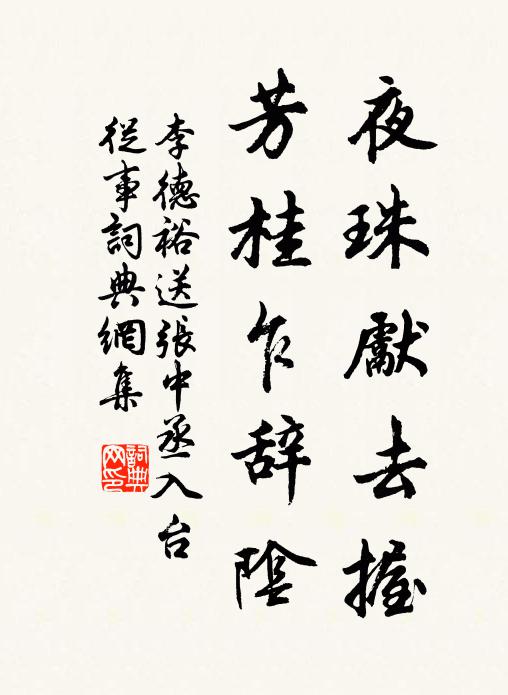 夜珠獻去握
芳桂乍辞陰
李德裕送張中丞入台
從事詞典網集
詞典网印